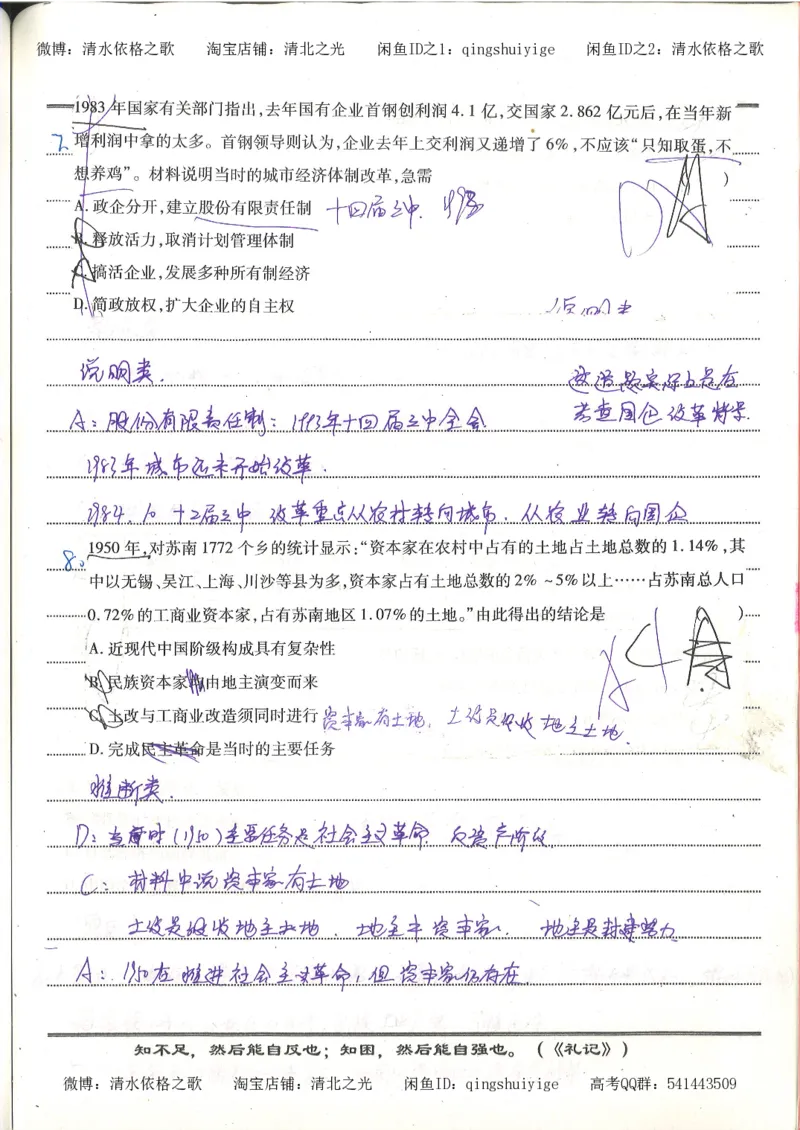 微博：清水依格之歌 淘宝店铺：清北之光 闲鱼ID之1：qingshuiyige 闲鱼ID之2：清水依格之歌
1983年国家有关部门指出，去年国有企业首钢创利润4.1亿，交国家2.862亿元后，在当年新
7. 增利润中拿的太多。首钢领导则认为，企业去年上交利润又递增了6%，不应该“只知取蛋，不
想养鸡”。材料说明当时的城市经济体制改革，急需 （ ）
A. 政企分开，建立股份有限责任制 十四届三中. 1993 D
B. 释放活力，取消计划管理体制
C. 搞活企业，发展多种所有制经济
D. 简政放权，扩大企业的自主权
说明类. 这道题实际上是在
A：股份有限责任制：1993年十四届三中全会 考查国企改革背景.
1983年城市还未开始改革.
1984.10 十二届三中 改革重点从农村转向城市. 从农业转向国企
8. 1950年，对苏南1772个乡的统计显示：“资本家在农村中占有的土地占土地总数的1.14%，其
中以无锡、吴江、上海、川沙等县为多，资本家占有土地总数的2%~5%以上……占苏南总人口
0.72%的工商业资本家，占有苏南地区1.07%的土地。”由此得出的结论是 （ ）
A. 近现代中国阶级构成具有复杂性
B. 民族资本家均由地主演变而来
C. 土改与工商业改造须同时进行 资本家有土地，土改是吸收地主土地.
D. 完成民主革命是当时的主要任务
推断类.
D：当时(1950)主要任务是社会主义革命. 反资产阶级
C：材料中说资本家有土地
土改是吸收地主土地. 地主≠资本家. 地主是封建势力
A：1950在推进社会主义革命，但资本家仍存在.
知不足，然后能自反也；知困，然后能自强也。（《礼记》）
微博：清水依格之歌 淘宝店铺：清北之光 闲鱼ID：qingshuiyige 高考QQ群：541443509